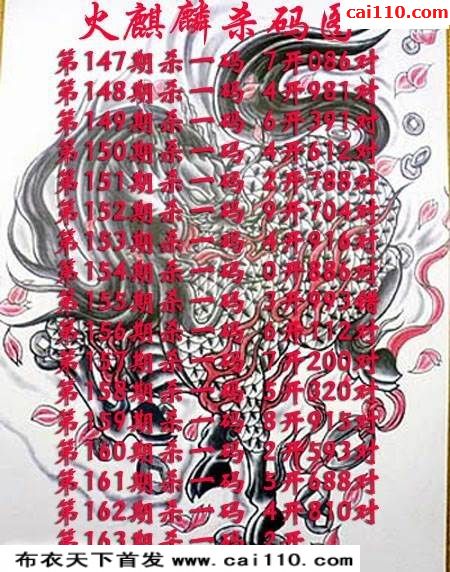 cai110.com
火麒麟杀码图
第147期杀一码 7开086对
第148期杀一码 4开981对
第149期杀一码 6开391对
第150期杀一码 4开612对
第151期杀一码 2开788对
第152期杀一码 9开704对
第153期杀一码 4开916对
第154期杀一码 0开886对
第155期杀一码 3开993错
第156期杀一码 6开112对
第157期杀一码 7开200对
第158期杀一码 5开320对
第159期杀一码 8开915对
第160期杀一码 2开593对
第161期杀一码 5开688对
第162期杀一码 4开810对
第163期杀一码 2开
布衣天下首发 www.cai110.com